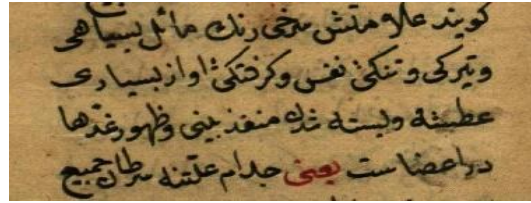 کویند علامتش سرخی رنك مائل بسیاهی
و تیرکی و تنکئ نفس و کرفتکئ اواز بسیاری
عطسه و بسته شدن منفذ بینی و ظهور غدها
در اعضا ست یعنی جذام علتنه سرطان جمیع